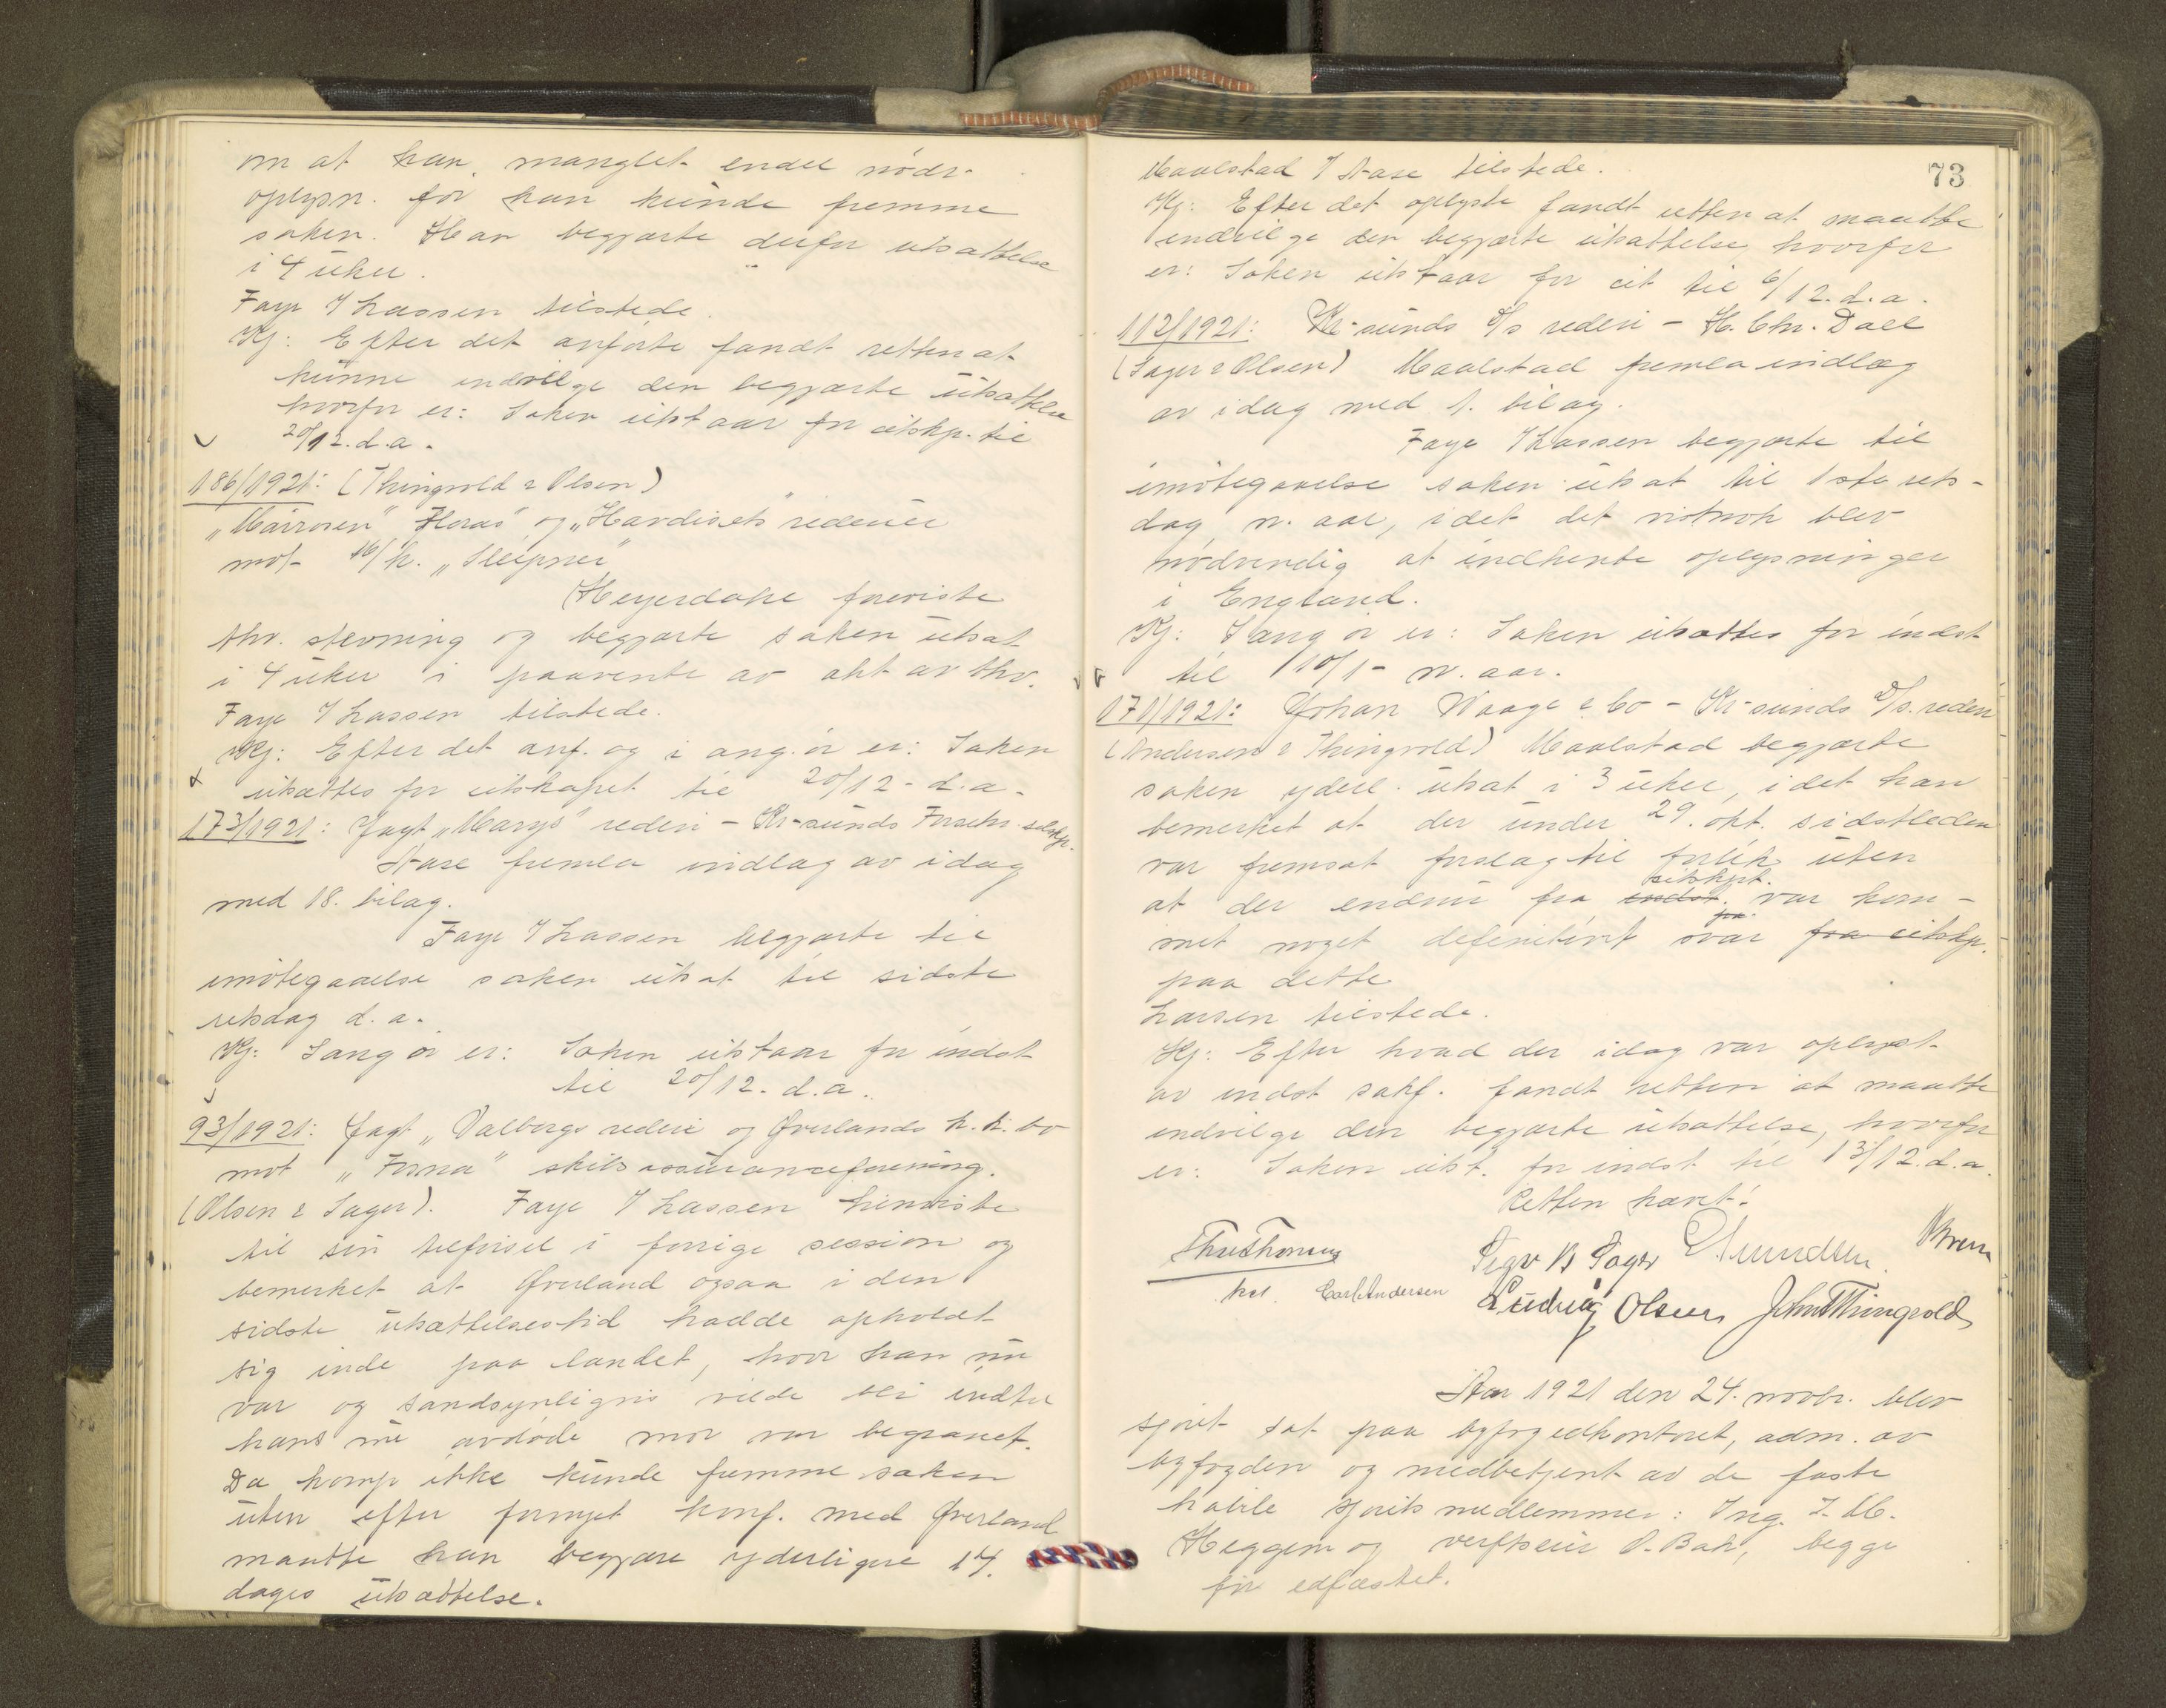 om at han manglet endel nödv.
oplysn. før han kunde fremme
saken. Han begjærte derfor utsættelse
i 4 uker.
Faye / Lassen tilstede.
Kj: Efter det anførte fandt retten at
kunne indvilge den begjærte utsættelse
hvorfor er: Saken utstaar for citskp. til
20/12. d.a.
186/1921: (Thingvold & Olsen)
"Mairosen" "Heras" og "Havdisets" rederier
mot M/k. "Sleipner"
Heyerdahl foreviste
thv. stevning og begjærte saken utsat
i 4 uker i paavente av akt av thv.
Faye / Lassen tilstede.
Kj: Efter det anf. og i ang. ör er: Saken
utsættes for citskapet til 20/12 - d.a.
173/1921: Jagt "Marys" rederi - Kr-sunds Forsikr. selskp.
Aase fremla indlæg av idag
med 18. bilag.
Faye / Lassen begjærte til
imötegaaelse saken utsat til sidste
retsdag d.a.
Kj: I ang ör er: Saken utstaar for indst
til 20/12. d.a.
93/1921: Jagt "Valborgs rederi og Øverlands k.k. bo
mot "Fosna" skibsassuranceforening.
(Olsen & Sager). Faye / Lassen henviste
til sin tilförsel i forrige session og
bemerket at Øverland ogsaa i den
sidste utsættelsestid hadde opholdt
sig inde paa landet, hvor han nu
var og sandsynligvis vilde bli indtil
hans nu avdöde mor var begravet.
Da komp ikke kunde fremme saken
uten efter fornyet konf. med Øverland
maatte han begjære yderligere 14.
dages utsættelse.
73
Maalstad / Aase tilstede.
Kj: Efter det oplyste fandt retten at maatte
indvilge den begjærte utsættelse, hvorfor
er: Saken utstaar for cit til 6/12. d.a.
112/1921: Kr-sunds D/s rederi - H. Chr. Dall
(Sager & Olsen) Maalstad fremla indlæg
av idag med 1. bilag.
Faye / Lassen begjærte til
imötegaaelse saken utsat til 1ste rets-
dag n. aar, idet det vistnok blev
nödvendig at indhente oplysninger
i England.
Kj: I ang ör er: Saken utsættes for indst
til 10/1 - n. aar.
171/1921: Johan Waage & Co - Kr-sunds D/s. rederi
(Andersen & Thingvold) Maalstad begjærte
saken yderl. utsat i 3 uker, idet han
bemerket at der under 29. okt. sidstleden
var fremsat forslag til forlik uten
citskpt.
at der endnu fra indst. var kom-
fra
met noget definitivt svar fra citskp.
paa dette
Larsen tilstede.
Kj: Efter hvad der idag var oplyst
av indst sakf. fandt retten at maatte
indvilge den begjærte utsættelse, hvorfor
er: Saken utst. for indst til 13/12. d.a.
Retten hævet!
Sigv B Sager
Carl Andersen
Ludvig Olsen John Thingvold
Aar 1921 den 24. novbr. blev
sjöret sat paa byfogedkontoret, adm. av
byfogden og medbetjent av de faste
habile sjöretsmedlemmer: Ing. I. M.
Heggem og verftseier O. Bak, begge
för edfæstet.